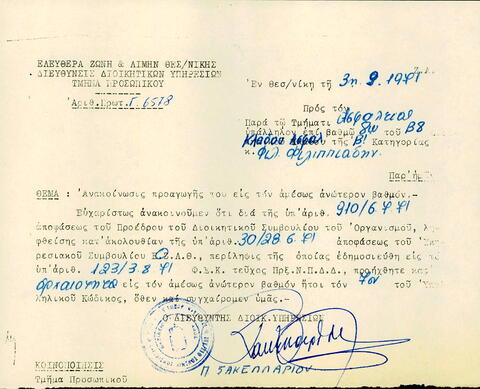 ΕΛΕΥΘΕΡΑ ΖΩΝΗ & ΛΙΜΗΝ ΘΕΣ/ΝΙΚΗΣ
ΔΙΕΥΘΥΝΣΙΣ ΔΙΟΙΚΗΤΙΚΩΝ ΥΠΗΡΕΣΙΩΝ
ΤΜΗΜΑ ΠΡΟΣΩΠΙΚΟΥ
Ἀριθ.Πρωτ.Γ.6518
Ἐν Θεσ/νίκῃ τῇ 3η 9 1971
Πρός τόν
Παρά τῷ Τμήματι Ἀσφαλείας
ὑπάλληλον ἐπί βαθμῷ 8ῳ τοῦ Β8
Κλάδου τῆς Β1 Κατηγορίας
κ. Φιλ. Φιλιππιάδην
Παρ' ἡμῖν
ΘΕΜΑ : Ἀνακοίνωσις προαγωγῆς του εἰς τόν ἀμέσως ἀνώτερον βαθμόν.-
Εὐχαρίστως ἀνακοινοῦμεν ὅτι διά τῆς ὑπ'ἀριθ. 910/6.71
ἀποφάσεως τοῦ Προέδρου τοῦ Διοικητικοῦ Συμβουλίου τοῦ Ὀργανισμοῦ, λη-
φθείσης κατ'ἀκολουθίαν τῆς ὑπ'ἀριθ. 30/28.6.71 ἀποφάσεως τοῦ Ὑπη-
ρεσιακοῦ Συμβουλίου Ε.Ο.Λ.Θ., περίληψις τῆς ὁποίας ἐδημοσιεύθη εἰς τό
ὑπ'ἀριθ. 123/3.8.71 Φ.Ε.Κ. τεῦχος Πρξ.Ν.Π.Δ.Δ., προήχθητε κατ'
ἀρχαιότητα εἰς τόν ἀμέσως ἀνώτερον βαθμόν ἤτοι τόν 7ον τοῦ Ὑπαλ-
ληλικοῦ Κώδικος, ὅθεν καί συγχαίρομεν ὑμᾶς.-
Ο ΔΙΕΥΘΥΝΤΗΣ ΔΙΟΙΚ.ΥΠΗΡΕΣΙΩΝ
Π ΣΑΚΕΛΛΑΡΙΟΥ
ΚΟΙΝΟΠΟΙΗΣΙΣ
Τμῆμα Προσωπικοῦ